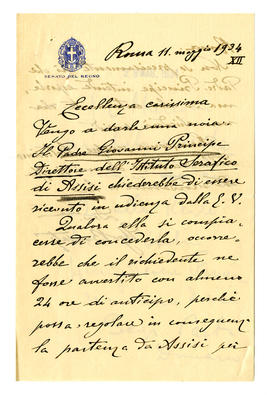 SENATO DEL REGNO
Roma 11. maggio 1934
XII
Eccellenza carissima
Vengo a darle una noia.
Il Padre Giovanni Principe
Direttore dell'Istituto Serafico
di Assisi chiederebbe di essere
ricevuto in udienza dalla E. V.
Qualora ella si compia-
cesse di concederla, occorre-
rebbe che il richiedente ne
fosse avvertito con almeno
24 ore di anticipo, perchè
possa regolare in conseguenza
la partenza da Assisi per